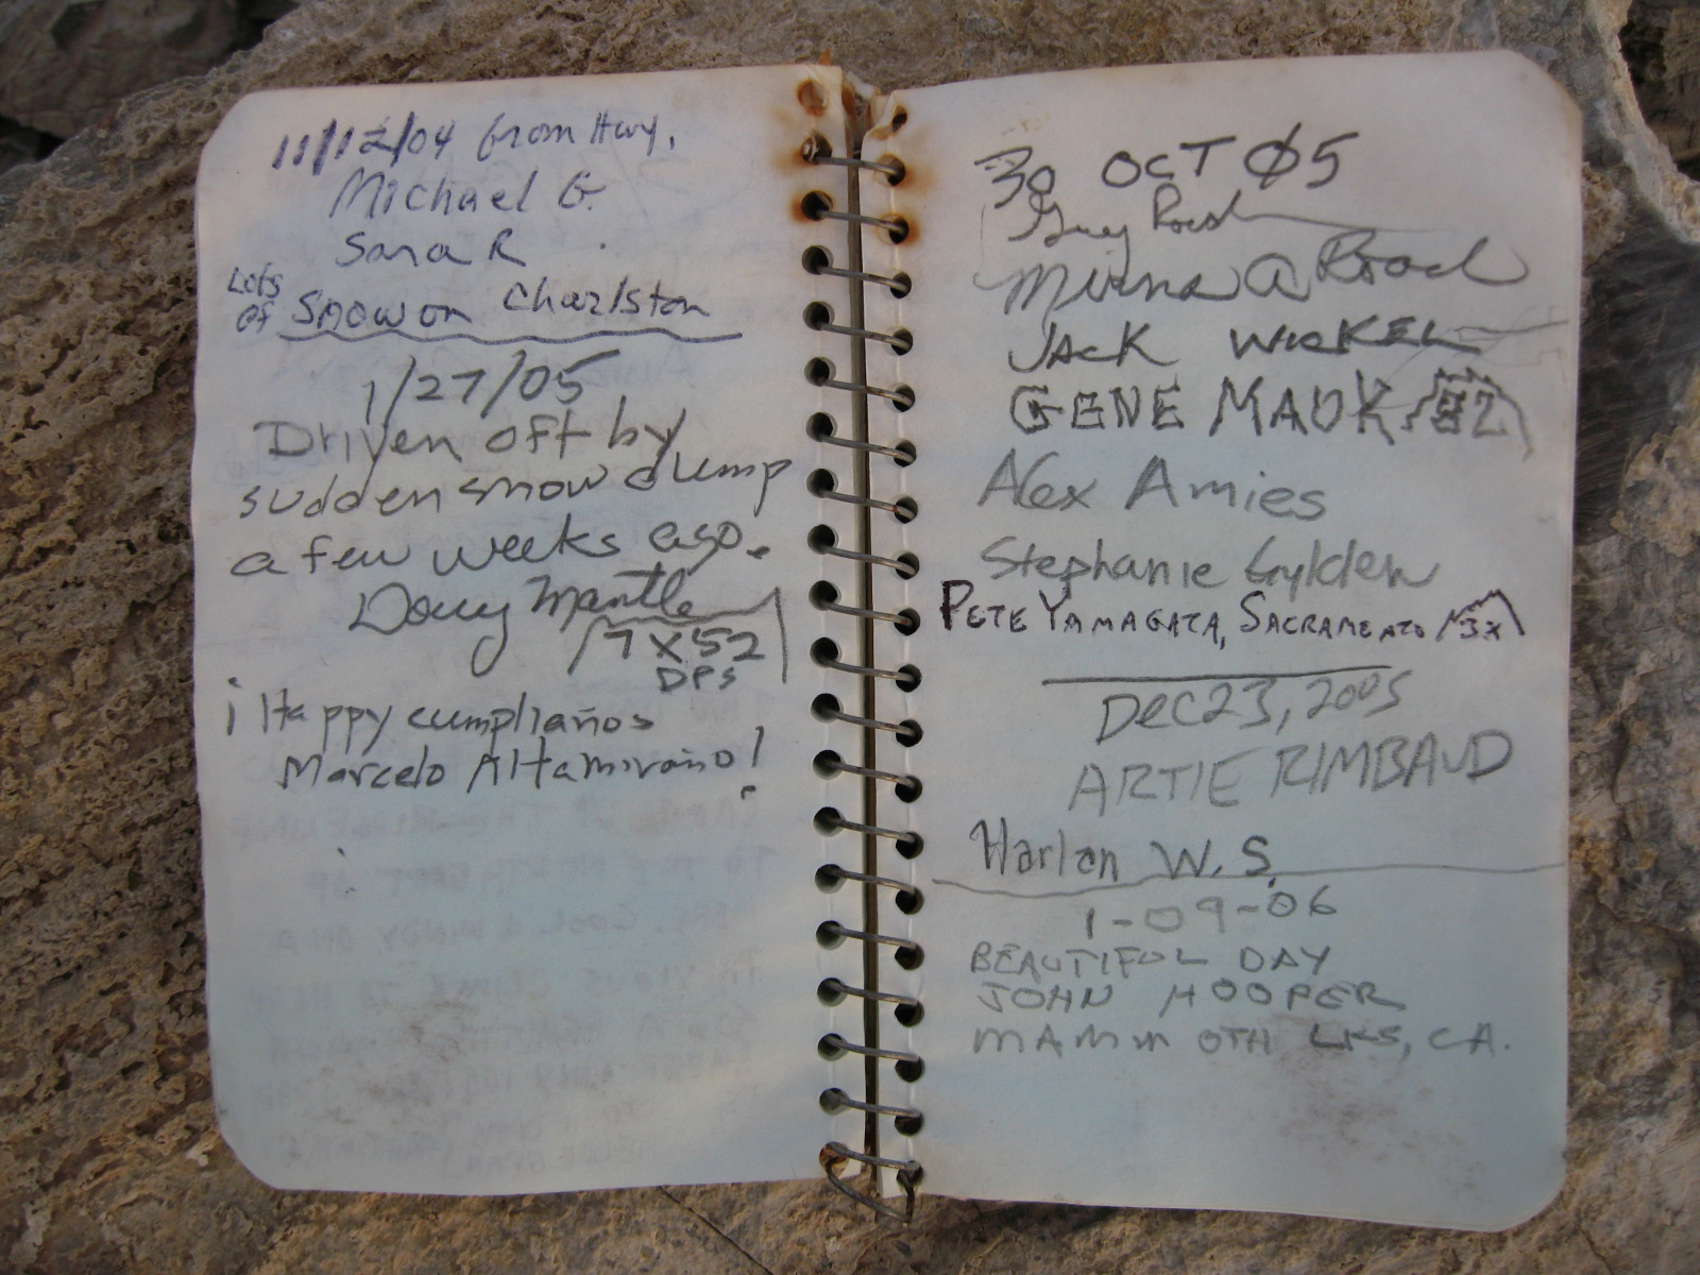 11/12/04 from Hwy.
Michael G.
Sara R
Lots
of Snow on Charlston
1/27/05
Driven off by
sudden snow dump
a few weeks ago.
Doug Mantle
7X52
DPS
¡Happy cumpliaños
Marcelo Altamiraño!
30 OCT 05
Greg Roach
Mirna A Roach
JACK WICKEL
GENE MAUK
Alex Amies
Stephanie Gylden
PETE YAMAGATA, SACRAMENTO 3X
Dec 23, 2005
ARTIE RIMBAUD
Harlan W.S.
1-09-06
BEAUTIFUL DAY
JOHN HOOPER
MAMMOTH LKS, CA.